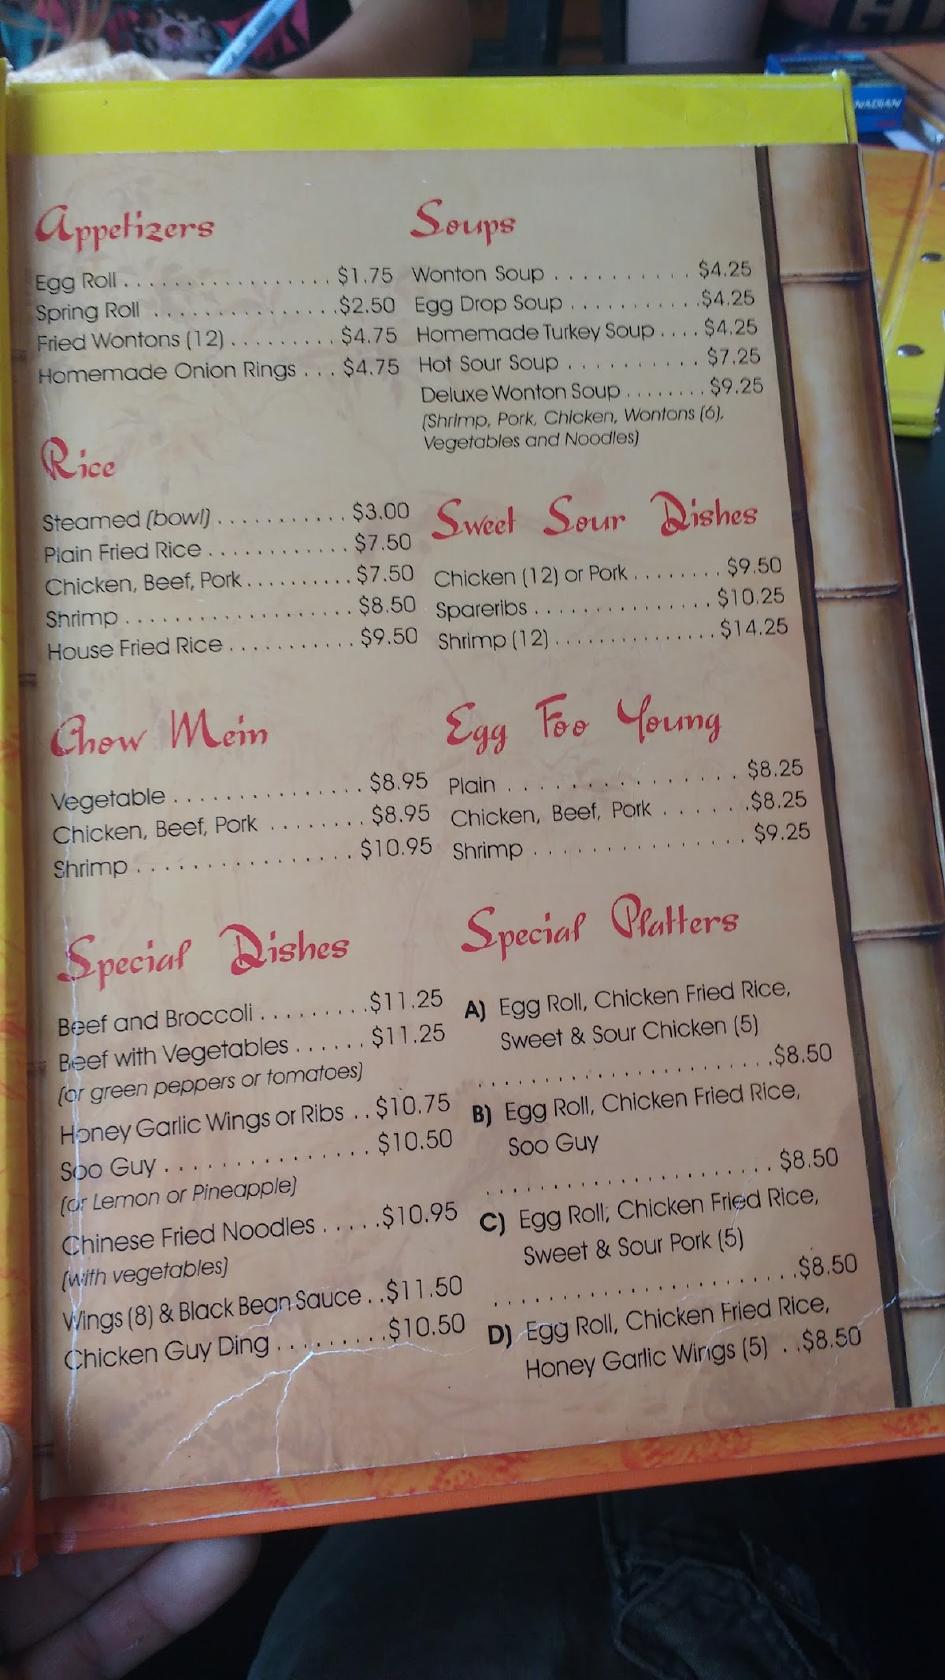 Appetizers
Egg Roll . . . . . . . . . . . . . . . . . $1.75
Spring Roll . . . . . . . . . . . . . . . $2.50
Fried Wontons (12) . . . . . . . . . $4.75
Homemade Onion Rings . . . $4.75
Rice
Steamed (bowl) . . . . . . . . . . . $3.00
Plain Fried Rice . . . . . . . . . . . . $7.50
Chicken, Beef, Pork . . . . . . . . . $7.50
Shrimp . . . . . . . . . . . . . . . . . . . $8.50
House Fried Rice . . . . . . . . . . . $9.50
Chow Mein
Vegetable . . . . . . . . . . . . . . . $8.95
Chicken, Beef, Pork . . . . . . . . $8.95
Shrimp . . . . . . . . . . . . . . . . . $10.95
Special Dishes
Beef and Broccoli . . . . . . . . . $11.25
Beef with Vegetables . . . . . . $11.25
(or green peppers or tomatoes)
Honey Garlic Wings or Ribs . . $10.75
Soo Guy . . . . . . . . . . . . . . . . $10.50
(or Lemon or Pineapple)
Chinese Fried Noodles . . . . . $10.95
(with vegetables)
Wings (8) & Black Bean Sauce . . $11.50
Chicken Guy Ding . . . . . . . . . $10.50
Soups
Wonton Soup . . . . . . . . . . . $4.25
Egg Drop Soup . . . . . . . . . . $4.25
Homemade Turkey Soup . . . . $4.25
Hot Sour Soup . . . . . . . . . . . $7.25
Deluxe Wonton Soup . . . . . . . . $9.25
(Shrimp, Pork, Chicken, Wontons (6),
Vegetables and Noodles)
Sweet Sour Dishes
Chicken (12) or Pork . . . . . . . . $9.50
Spareribs . . . . . . . . . . . . . . . . $10.25
Shrimp (12) . . . . . . . . . . . . . . . $14.25
Egg Foo Young
Plain . . . . . . . . . . . . . . . . $8.25
Chicken, Beef, Pork . . . . . . . $8.25
Shrimp . . . . . . . . . . . . . . . $9.25
Special Platters
A) Egg Roll, Chicken Fried Rice,
Sweet & Sour Chicken (5)
. . . . . . . . . . . . . . . . . . . . . . $8.50
B) Egg Roll, Chicken Fried Rice,
Soo Guy
. . . . . . . . . . . . . . . . . . . . . . $8.50
C) Egg Roll, Chicken Fried Rice,
Sweet & Sour Pork (5)
. . . . . . . . . . . . . . . . . . . . . . $8.50
D) Egg Roll, Chicken Fried Rice,
Honey Garlic Wings (5) . . $8.50